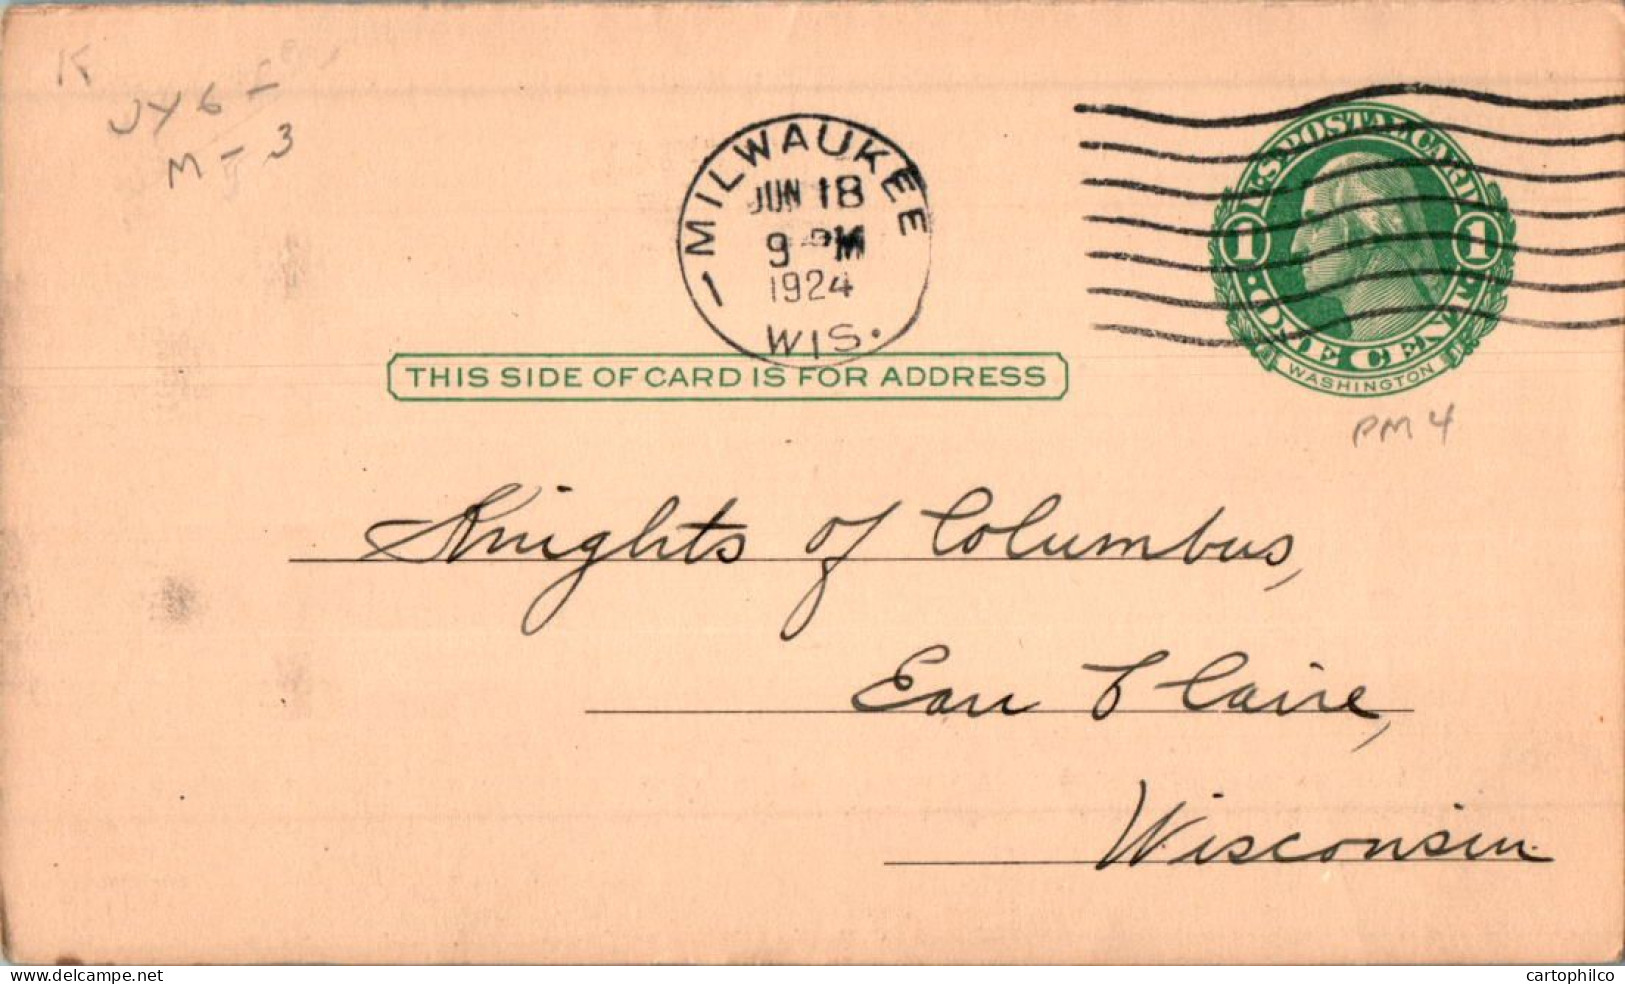 K
JY 6 -
M - 3
MILWAUKEE
JUN 18
9 PM
1924
WIS.
U.S. POSTAL CARD
1 1
ONE CENT
WASHINGTON
THIS SIDE OF CARD IS FOR ADDRESS
PM 4
Knights of Columbus,
Eau Claire,
Wisconsin.
delcampe.net
cartophilco